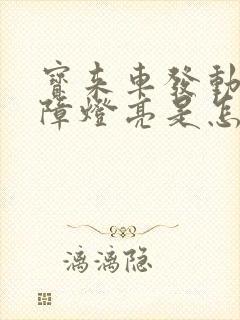 寶来車發動
障燈亮是怎
漓漓隐